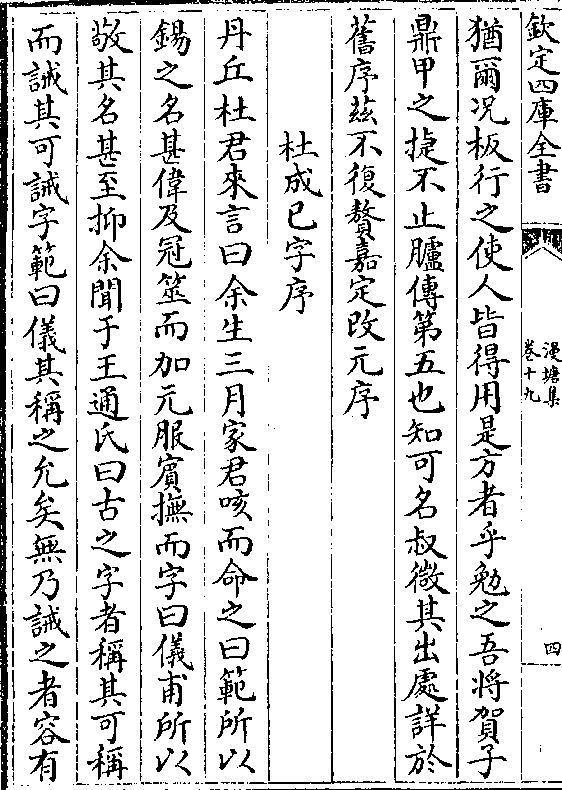 欽定四庫全書
漫塘集
卷十九
四
猶爾况板行之使人皆得用是方者乎勉之吾将賀子
鼎甲之捷不止臚傳第五也知可名叔微其出處詳於
舊序茲不復贅嘉定改元序
杜成已字序
丹丘杜君來言曰余生三月家君咳而命之曰範所以
錫之名甚偉及冠筮而加元服賓撫而字曰儀甫所以
敬其名甚至抑余聞于王通氏曰古之字者稱其可稱
而誡其可誡字範曰儀其稱之允矣無乃誡之者容有